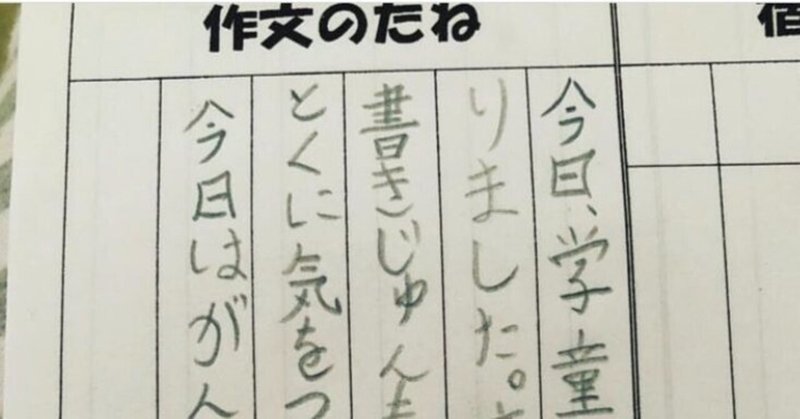 作文のたね
今日、学童
りました。
書きじゅん
とくに気をつ
今日はがん